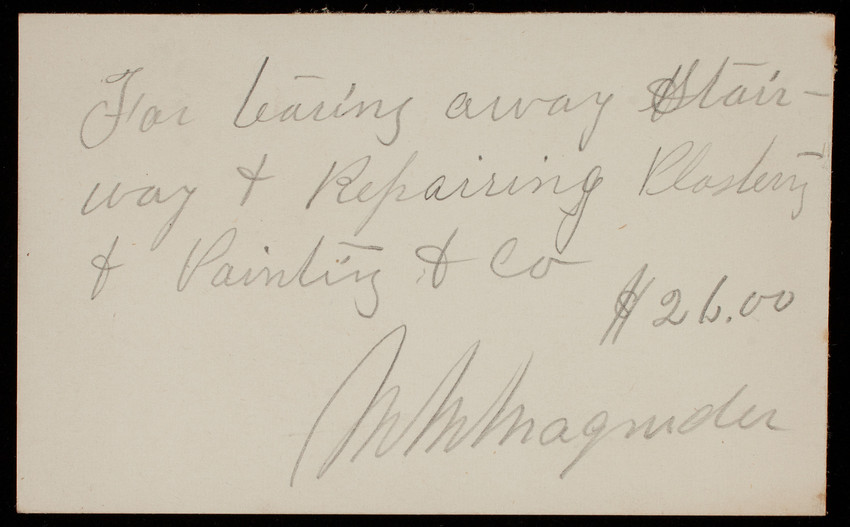 For tearing away Stair-
way & Repairing Plastering
& Painting & Co
$26.00
M M Magruder